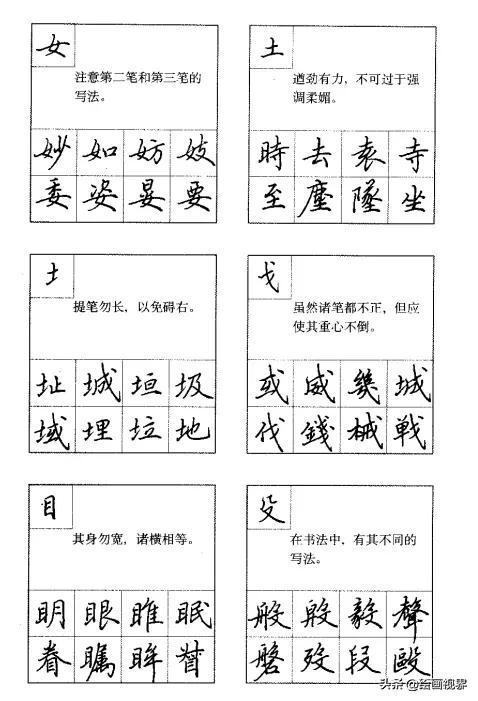 女
注意第二笔和第三笔的
写法。
妙如妨妓
委姿宴要
土
遒劲有力，不可过于强
调柔媚。
時去袁寺
至塵墜坐
土
提笔勿长，以免碍右。
址城垣圾
域埋垃地
戈
虽然诸笔都不正，但应
使其重心不倒。
或威幾城
伐錢械戰
目
其身勿宽，诸横相等。
明眼睢眠
眷矚眸督
殳
在书法中，有其不同的
写法。
般殷毅聲
磐殁段毆
头条@绘画视界